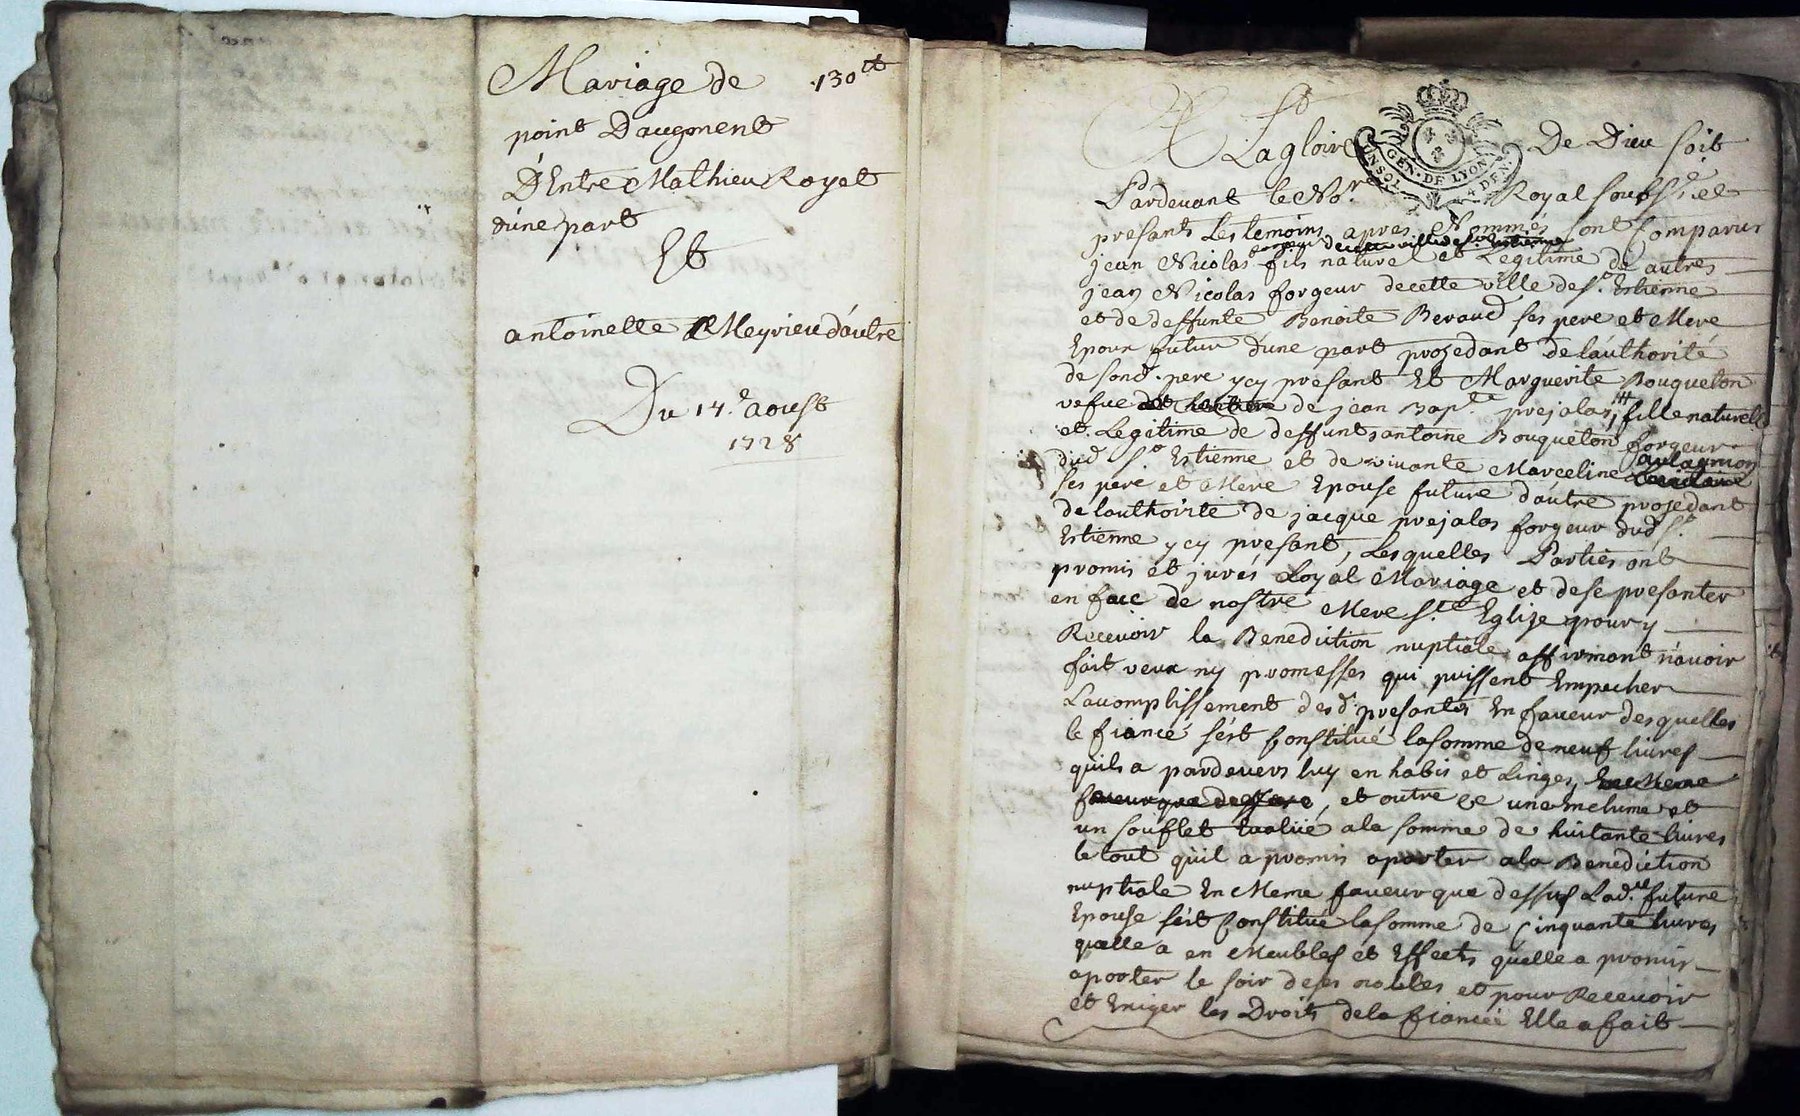 Mariage de 130tt
point Daugment
D'Entre Mathieu Royet
d'une part
Et
antoinette Meyrieu d'autre
Du 14.e aoust
1728
A La gloire De Dieu soit
GEN. DE LYON
4 DEN.
Pardevant le No.re Royal soubs.né et
presants Les temoins apres Nommés sont Comparus
forgeur de cette ville de st Estienne
jean Nicolas fils naturel et Legitime de autres
jean Nicolas forgeur decette ville de st. Estienne
et de deffunte Benoite Beraud ses pere et Mere
Epoux futur d'une part prosedant de lauthorité
de sond. pere ycy présant Et Marguerite Bouqueton
vefue de jean Bap.te prejalas, fille naturelle
et Legitime de deffunts antoine Bouqueton forgeur
dud St Estienne et de vivante Marceline
ses pere et Mere Epouse future d'autre prosedant
de lauthoirité de jacque prejalas forgeur dud St.
Estienne ycy presant, Lesquelles Parties ont
promis et jurés Loyal Mariage et dese presanter
en face de nostre Mere S.te Eglise pour y
Recevoir la Benediction nuptiale affirmant n'avoir
fait veux ny promesses qui puissent Empecher
Lacomplissement desd. presantes En faveur desquelles
le fiancé s'est Constitué la somme de neuf livres
quils a pardevers luy en habis et Linges,
et outre ce une Enclume et
un souflet Evalué a la somme de huitante livres
le tout qu'il a promis aporter a la Benediction
nuptiale En Meme faveur que dessus Lad.te future
Epouse s'est Constitué la somme de Cinquante livres
quelle a en Meubles et Effects quelle a promis
aporter le soir deses nobces et pour Recevoir
et Exiger les Droits dela fiancée Elle a fait